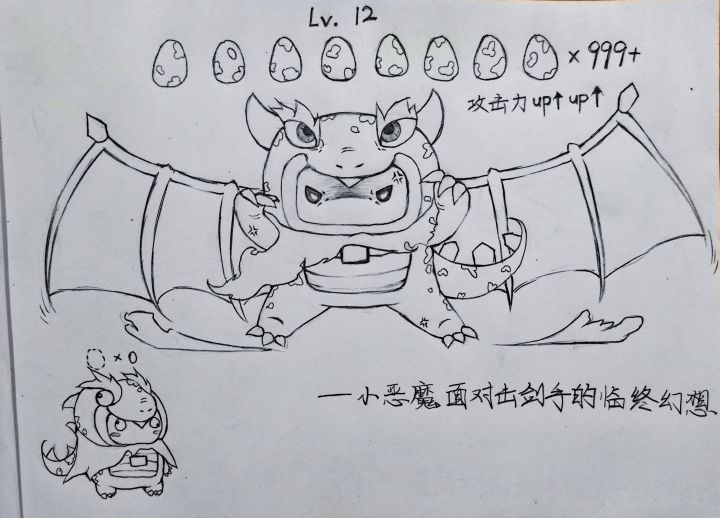 Lv. 12
× 999+
攻击力up↑up↑
× 0
—小恶魔面对击剑手的临终幻想